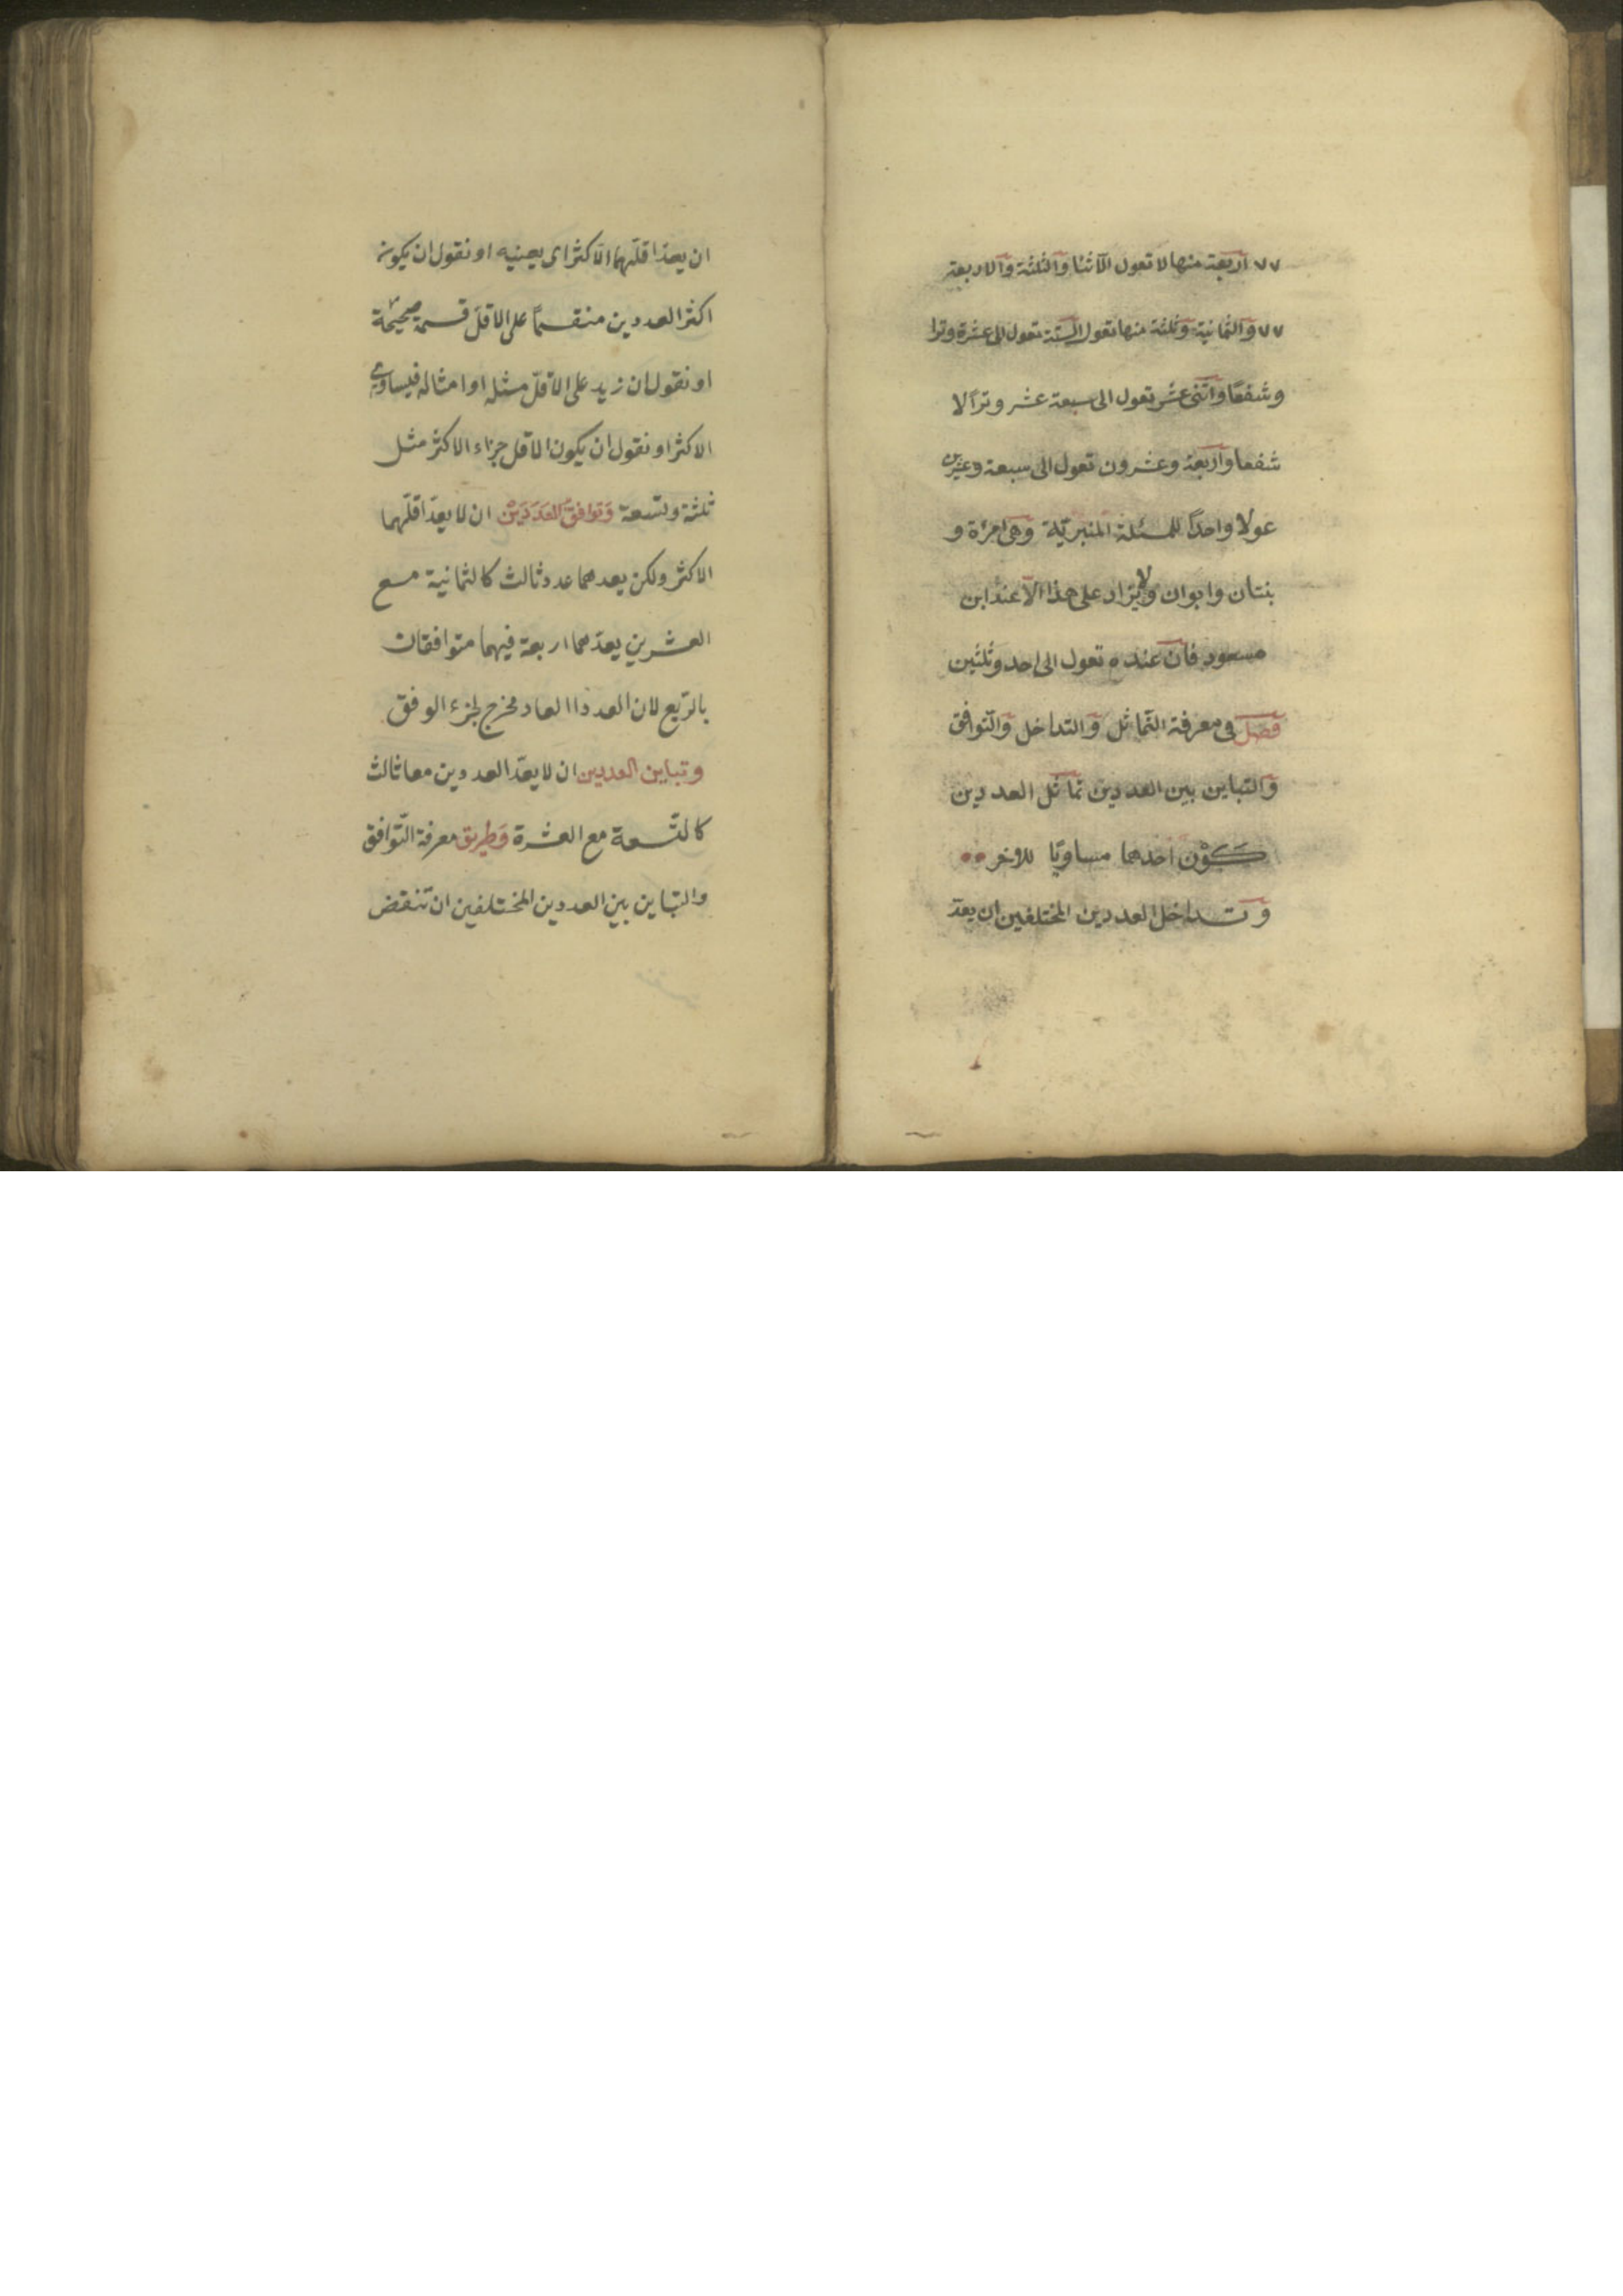 ٧٧ اربعة منها لا تعول الاثنا والثلثة والاربعة
٧٧ والثمانية وثلثة منها تعول الستة تعول الى عشرة وترا
وشفعًا واثنى عشر تعول الى سبعة عشر وترًا لا
شفعا واربعة وعشرون تعول الى سبعة وعشرين
عولا واحدًا للمسئلة المنبريّة وهى امرءة و
بنتان وابوان ولا يزاد على هذا الّا عند ابن
مسعود فان عنده تعول الى احد وثلثين
فصل فى معرفة التّماثل والتداخل والتّوافق
والتباين بين العددين تماثل العددين
كَوْن احدهما مساويًا للاخر
وتداخل العددين المختلفين ان يعدّ
ان يعدّ اقلّهما الاكثر اى يعينيه او نقول ان يكون
اكثر العددين منقسمًا على الاقلّ قسمة صحيحة
او نقول ان زيد على الاقلّ مثله او امثاله فيساوى
الاكثر او نقول ان يكون الاقل جزاء الاكثر مثل
ثلثة وتسعة وَتوافقُ العَدَدَيْن ان لا يعدّ اقلّهما
الاكثر ولكن يعدهما عدد ثالث كالثمانية مع
العشرين يعدّهما اربعة فيهما متوافقان
بالرّبع لان العدد االعاد مخرج لجزء الوفق
وتباين العددين ان لا يعدّ العددين معا ثالث
كالتّسعة مع العشرة وَطريق معرفة التّوافق
والتباين بين العددين المختلفين ان تنقض